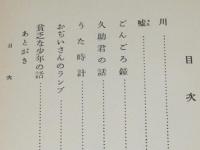 目次
川
嘘
ごんごろ鐘
久助君の話
うた時計
おぢいさんのランプ
貧乏な少年の話
あとがき
目次